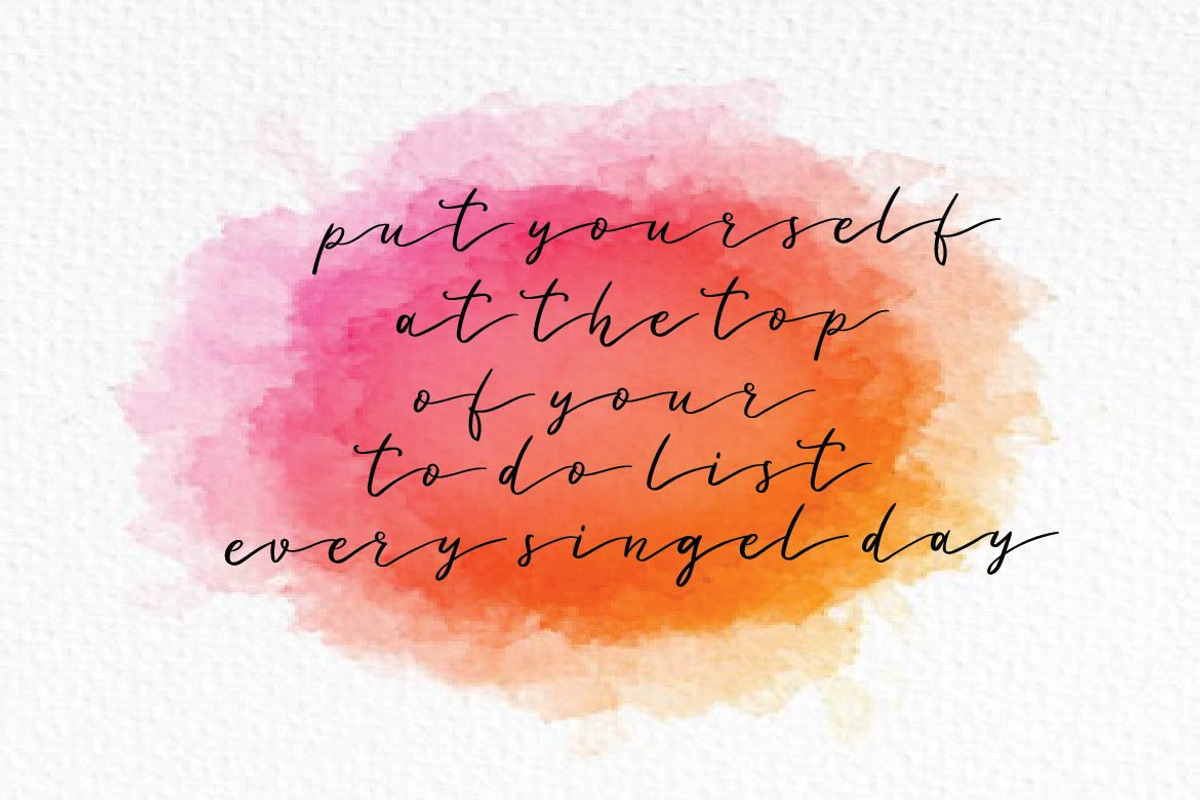 put yourself
at the top
of your
to do list
every singel day